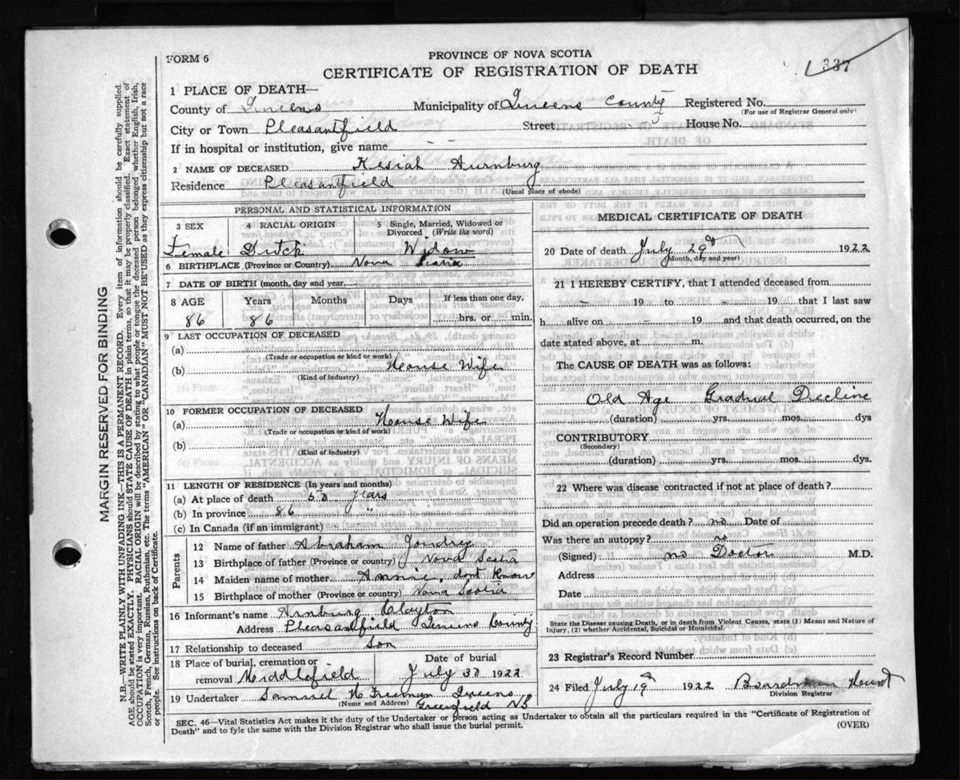 FORM 6
PROVINCE OF NOVA SCOTIA
CERTIFICATE OF REGISTRATION OF DEATH
337
1 PLACE OF DEATH—
County of Queens Municipality of Queens County Registered No.
(For use of Registrar General only)
City or Town Pleasantfield Street House No.
If in hospital or institution, give name
2 NAME OF DECEASED Kesiah
Residence Pleasantfield
(Usual place of abode)
PERSONAL AND STATISTICAL INFORMATION
3 SEX 4 RACIAL ORIGIN 5 Single, Married, Widowed or Divorced (Write the word)
Female Dutch Widow
6 BIRTHPLACE (Province or Country) Nova Scotia
7 DATE OF BIRTH (month, day and year)
8 AGE Years Months Days If less than one day,
86 86 hrs. or min.
9 LAST OCCUPATION OF DECEASED
(a)
(Trade or occupation or kind of work)
(b) House Wife
(Kind of industry)
10 FORMER OCCUPATION OF DECEASED
(a) House Wife
(Trade or occupation or kind of work)
(b)
(Kind of industry)
11 LENGTH OF RESIDENCE (In years and months)
(a) At place of death 50 years
(b) In province 86 "
(c) In Canada (if an immigrant)
Parents
12 Name of father Abraham Joudrey
13 Birthplace of father (Province or country) Nova Scotia
14 Maiden name of mother Annie, dont Know
15 Birthplace of mother (Province or country) Nova Scotia
16 Informant's name Clayton
Address Pleasantfield Queens County
17 Relationship to deceased Son
18 Place of burial, cremation or removal Middlefield Date of burial July 30 1922
19 Undertaker Samuel H. Freeman Queens
(Name and Address) Greenfield NS
MEDICAL CERTIFICATE OF DEATH
20 Date of death July 29 1922
(Month, day and year)
21 I HEREBY CERTIFY, that I attended deceased from
19 to 19 that I last saw
h alive on 19 and that death occurred, on the
date stated above, at m.
The CAUSE OF DEATH was as follows:
Old Age Gradual Decline
(duration) yrs. mos. dys
CONTRIBUTORY
(Secondary)
(duration) yrs. mos. dys.
22 Where was disease contracted if not at place of death?
Did an operation precede death? no Date of
Was there an autopsy? no
(Signed) no Doctor M.D.
Address
Date
State the Disease causing Death, or in death from Violent Causes, state (1) Means and Nature of Injury, (2) whether Accidental, Suicidal or Homicidal.
23 Registrar's Record Number
24 Filed July 1922
Division Registrar
SEC. 46—Vital Statistics Act makes it the duty of the Undertaker or person acting as Undertaker to obtain all the particulars required in the "Certificate of Registration of
Death" and to fyle the same with the Division Registrar who shall issue the burial permit. (OVER)
MARGIN RESERVED FOR BINDING
N.B.—WRITE PLAINLY WITH UNFADING INK—THIS IS A PERMANENT RECORD. Every item of information should be carefully supplied.
AGE should be stated EXACTLY. PHYSICIANS should STATE CAUSE OF DEATH in plain terms, so that it may be properly classified. Exact statement of
OCCUPATION is very important. RACIAL ORIGIN will be described by stating to what people or tongue the deceased person belonged whether English, Irish,
Scotch, French, German, Russian, Ruthenian, etc. The terms "AMERICAN" OR "CANADIAN" MUST NOT BE USED as they express citizenship but not a race
or people. See instructions on back of Certificate.